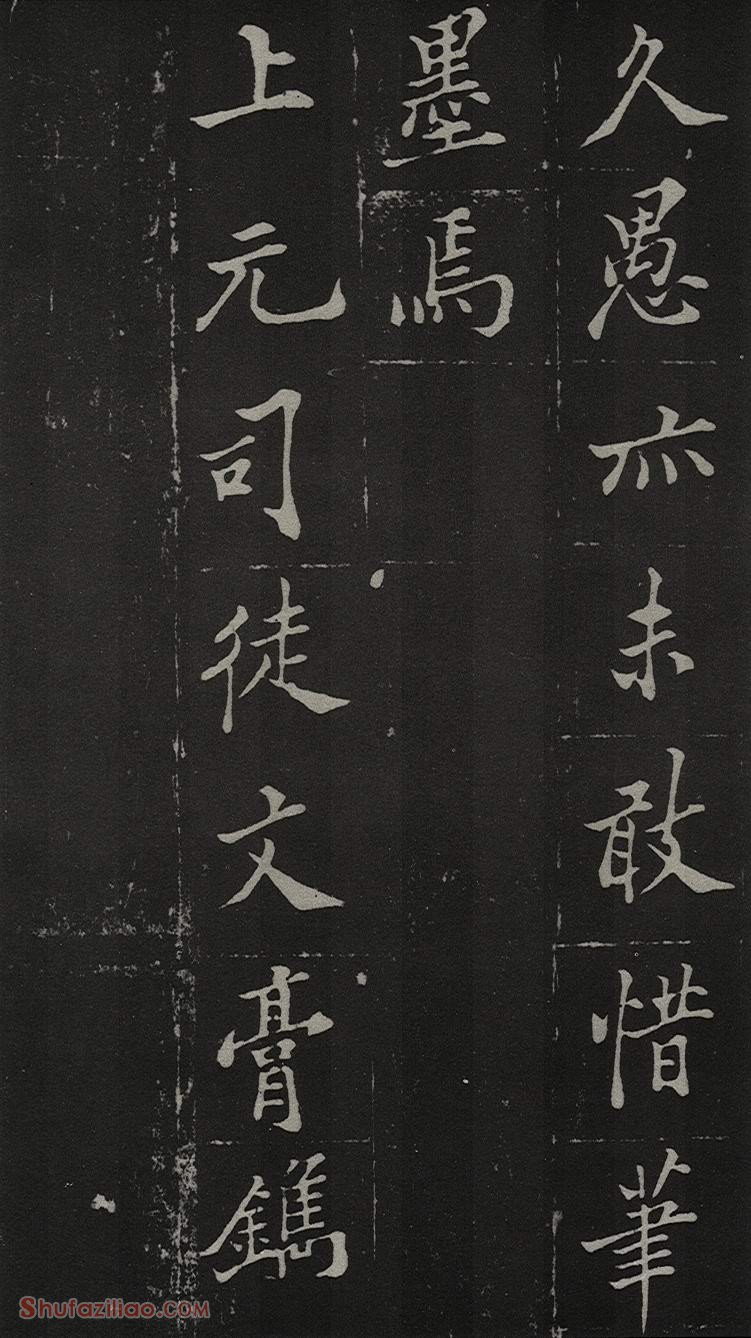 久愚亦未敢惜筆
墨焉
上元司徒文膏鐫
Shufaziliao.com